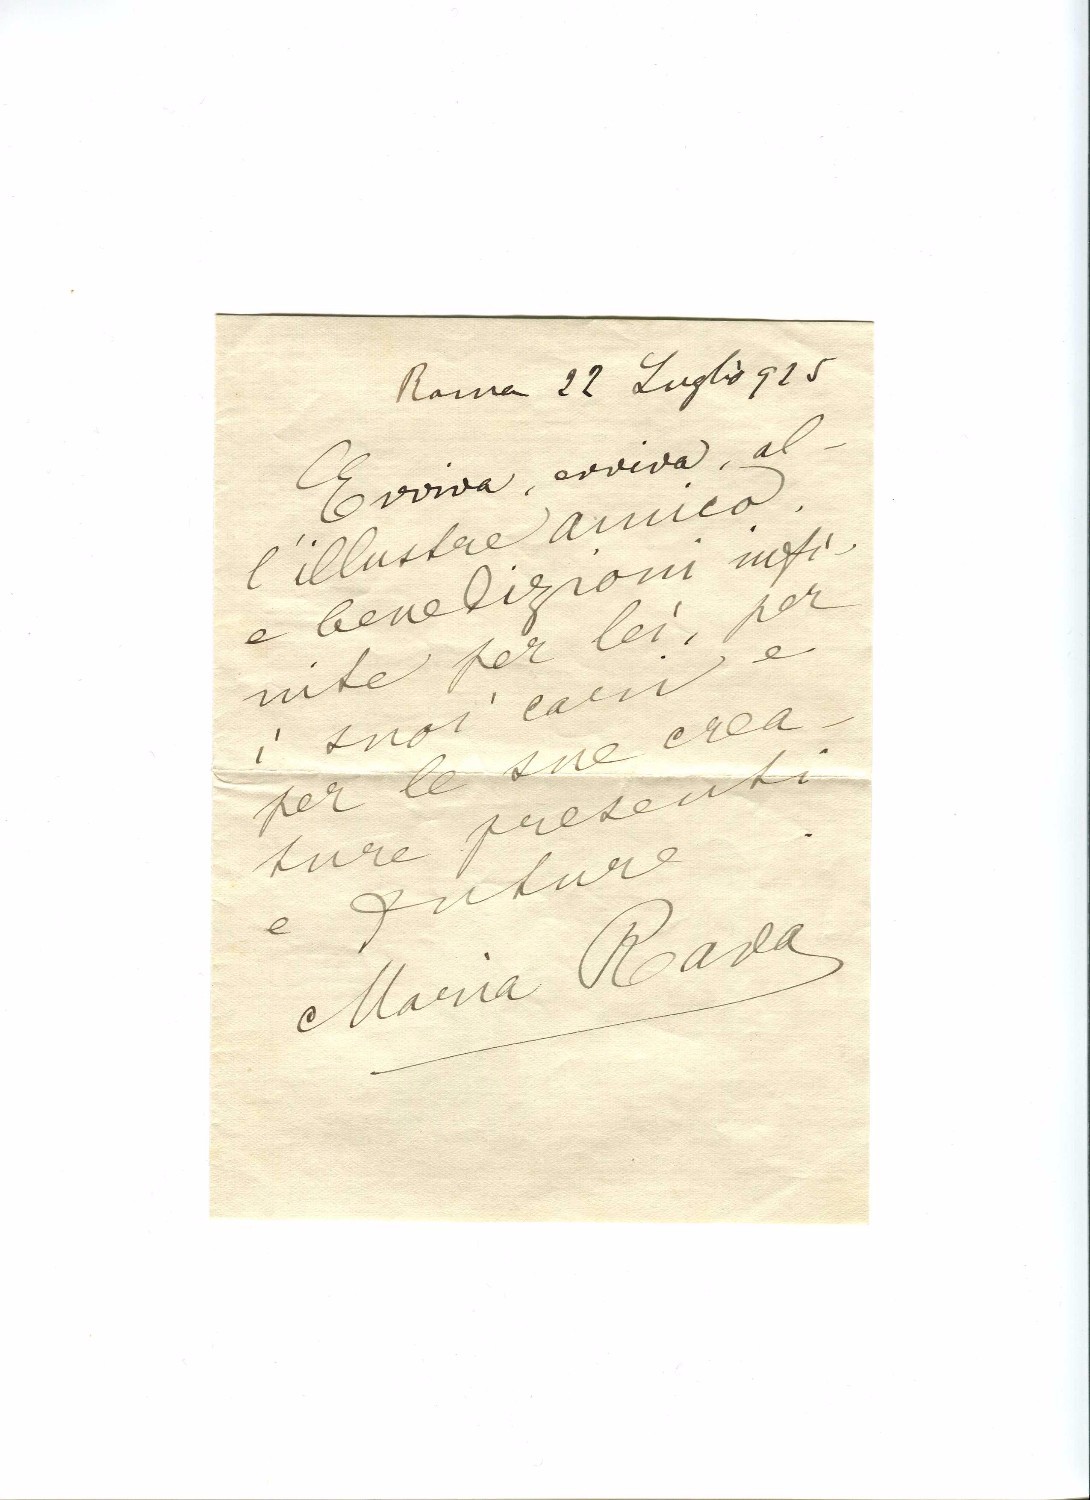 Roma 22 Luglio 925
Evviva, evviva, al-
l'illustre amico,
e benedizioni infi-
nite per lei, per
i suoi cari e
per le sue crea-
ture presenti
e future.
Maria Rava